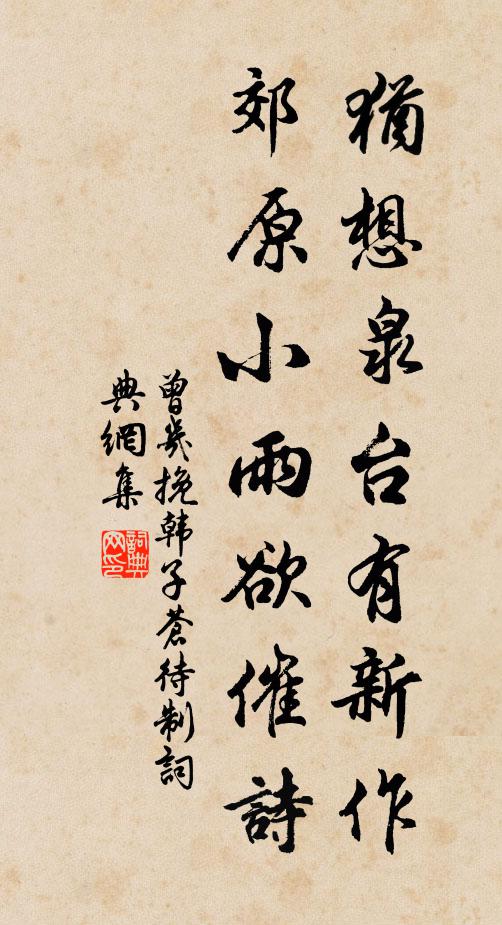 猶想泉台有新作
郊原小雨欲催詩
曾幾挽韩子蒼待制詞
典網集
詞典网印